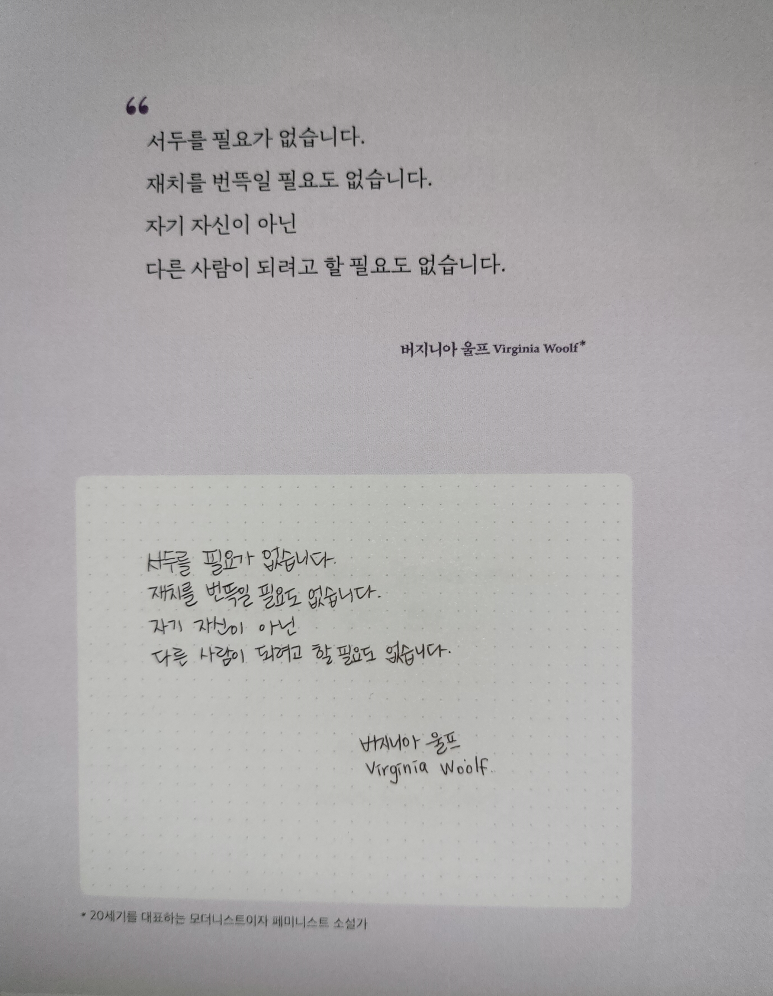 “
서두를 필요가 없습니다.
재치를 번뜩일 필요도 없습니다.
자기 자신이 아닌
다른 사람이 되려고 할 필요도 없습니다.
버지니아 울프 Virginia Woolf*
서두를 필요가 없습니다.
재치를 번뜩일 필요도 없습니다.
자기 자신이 아닌
다른 사람이 되려고 할 필요도 없습니다.
버지니아 울프
Virginia Woolf.
* 20세기를 대표하는 모더니스트이자 페미니스트 소설가